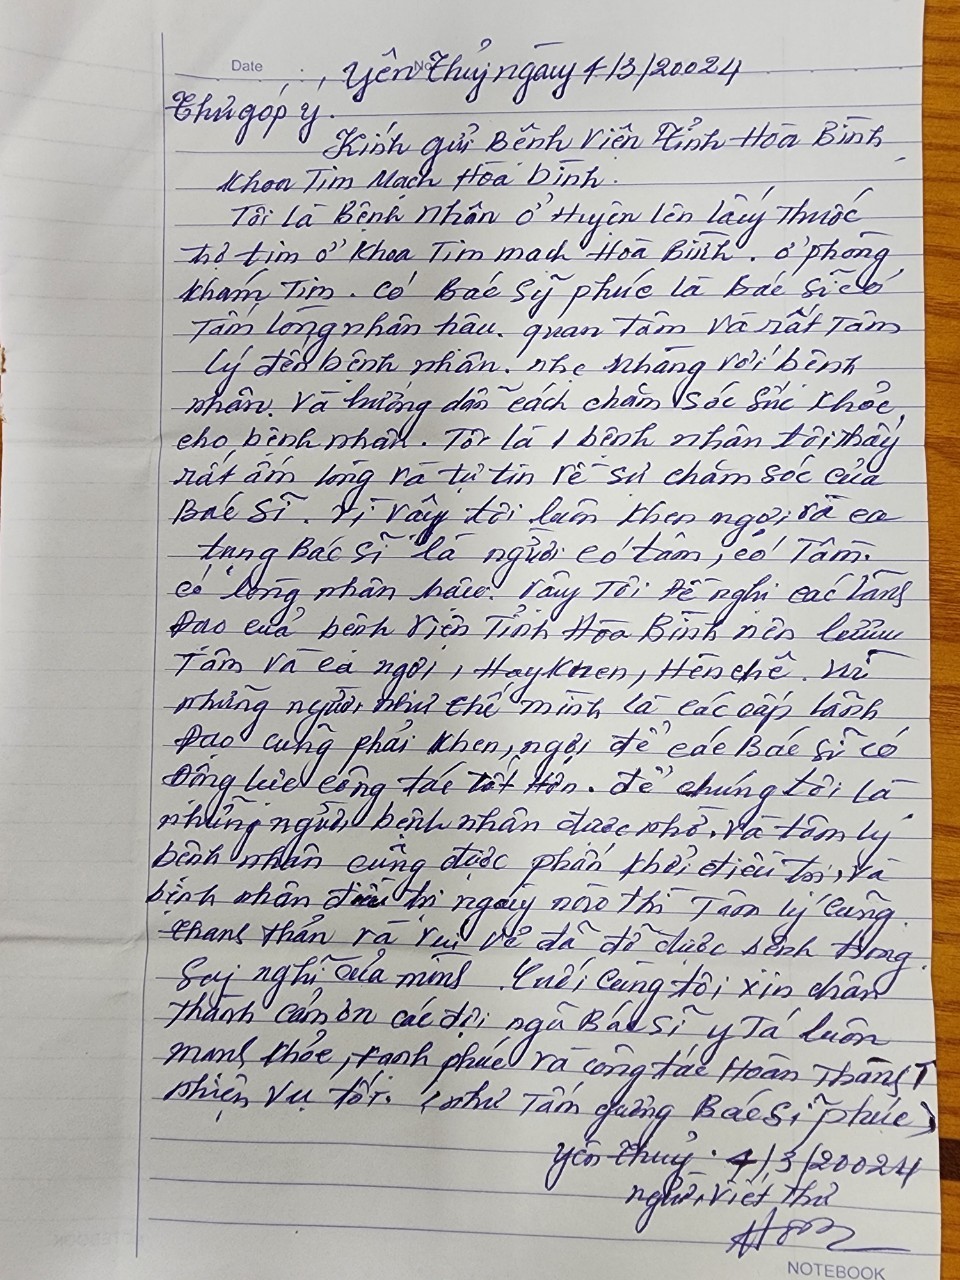 Date No
Yên Thủy ngày 4/3/20024
Thư góp ý.
Kính gửi Bệnh Viện Tỉnh Hòa Bình
Khoa Tim Mạch Hòa bình.
Tôi là Bệnh nhân ở Huyện lên lấy Thuốc
trợ tim ở Khoa Tim mạch Hòa Bình. ở phòng
khám Tim. có Bác Sỹ phúc là Bác sĩ có
Tấm lòng nhân hâu. quan Tâm và rất Tâm
lý đến bệnh nhân. nhẹ nhàng với bệnh
nhân. và hướng dẫn cách chăm sóc sức khỏe,
cho bệnh nhân. Tôi là 1 bệnh nhân tôi thấy
rất ấm lòng và tự tin về sự chăm sóc của
Bác Sĩ. Vì vậy tôi luôn khen ngợi và ca
tụng Bác sĩ là người có tâm, có Tầm.
có lòng nhân hâu. Vậy Tôi Đề nghị các lãng
Đạo của bệnh viện Tỉnh Hòa Bình nên lưu
Tâm và ca ngợi, Hay Khen, Hèn chê. Vì
những người như thế mình là các cấp lãnh
Đạo cũng phải khen, ngợi để các Bác sĩ có
Động lực công tác tốt Hơn. để chúng tôi là
những người bệnh nhân được nhờ, và tâm lý
bệnh nhân cũng được phấn khởi điều trị, và
bệnh nhân điều trị ngày nào thì Tâm lý cũng
thanh thản và vui vẻ đã đỡ được bệnh trong
Suy nghĩ của mình. Cuối cùng tôi xin chân
Thành cảm ơn các đội ngũ Bác Sĩ y Tá luôn
mạnh khỏe, hạnh phúc và công tác Hoàn Thành T
nhiệm vụ tốt. (như Tấm gương Bác Sĩ phúc)
Yên Thuỷ. 4/3/20024
người viết thư
NOTEBOOK